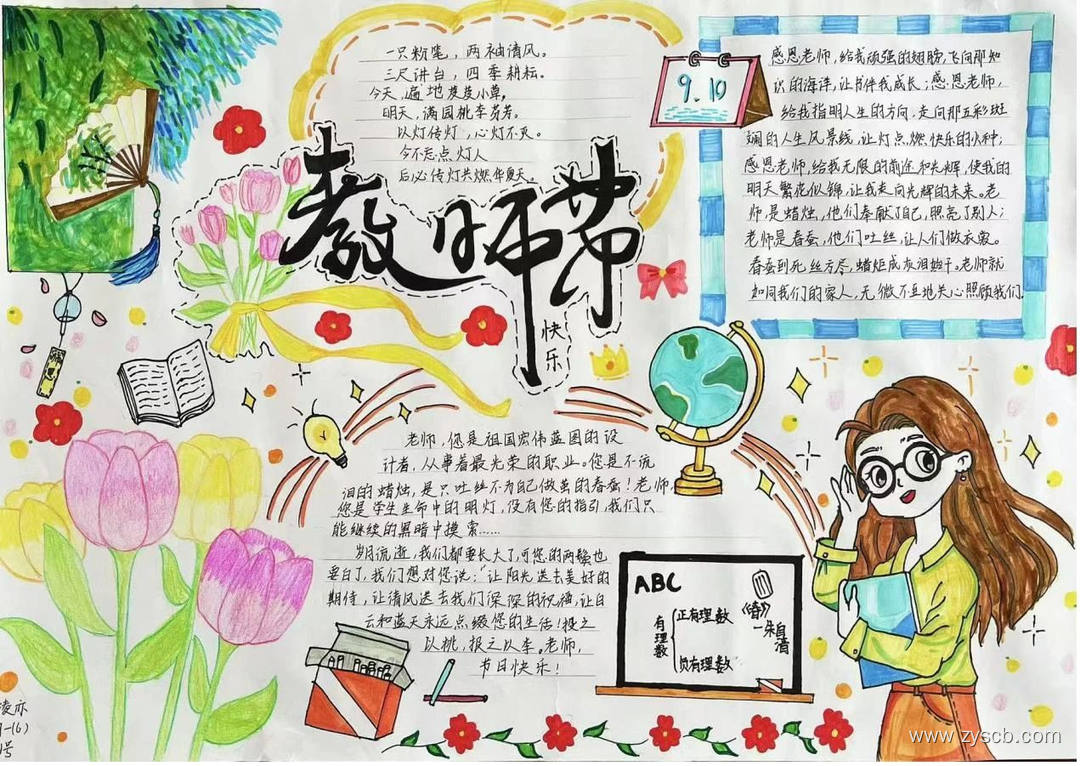 一只粉笔，两袖清风。
三尺讲台，四季耕耘。
今天，遍地芨芨小草，
明天，满园桃李芬芳。
以灯传灯，心灯不灭。
今不忘点灯人
后必传灯共燃华夏天。
教师节
快乐
9.10
感恩老师，给我顽强的翅膀，飞向那知
识的海洋，让书伴我成长；感恩老师，
给我指明人生的方向，走向那五彩斑
斓的人生风景线，让灯点燃快乐的火种；
感恩老师，给我无限的前途和光辉，使我的
明天繁花似锦，让我走向光辉的未来。老
师是蜡烛，他们奉献了自己，照亮了别人；
老师是春蚕，他们吐丝，让人们做衣裳。
春蚕到死丝方尽，蜡炬成灰泪始干。老师就
如同我们的家人，无微不至地关心照顾我们。
老师，您是祖国宏伟蓝图的设
计者，从事着最光荣的职业。您是不流
泪的蜡烛，是只吐丝不为自己做茧的春蚕！老师，
您是学生生命中的明灯，没有您的指引，我们只
能继续的黑暗中摸索……
岁月流逝，我们都要长大了，可您的两鬓也
要白了，我们想对您说："让阳光送去美好的
期待，让清风送去我们深深的祝福，让白
云和蓝天永远点缀您的生活！投之
以桃，报之以李。老师，
节日快乐！
ABC
有理数
正有理数
负有理数
《春》
—朱自清
凌亦
-(6)
号
www.zyscb.com